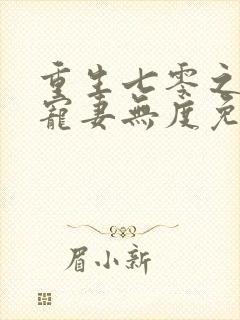 重生七零之
寵妻無度免
眉小新